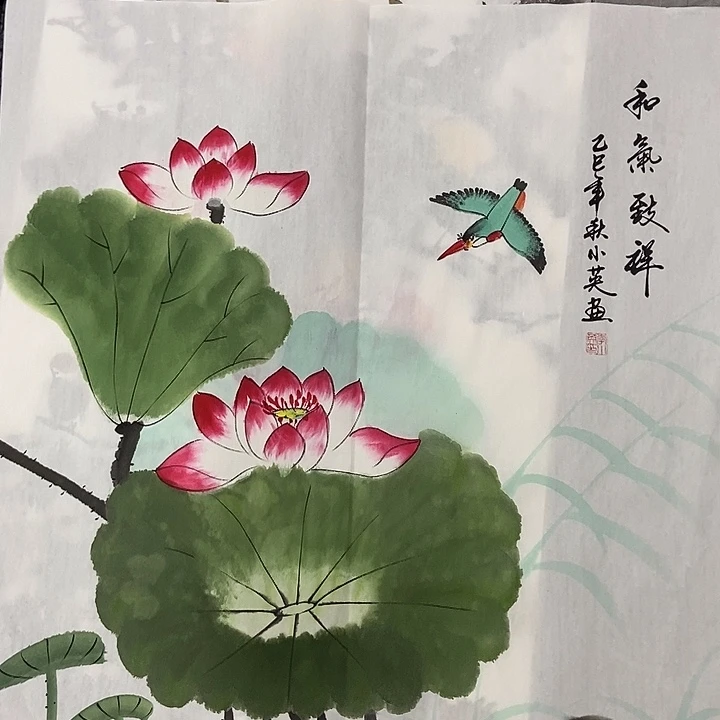 和氣致祥
乙巳年秋小英畫